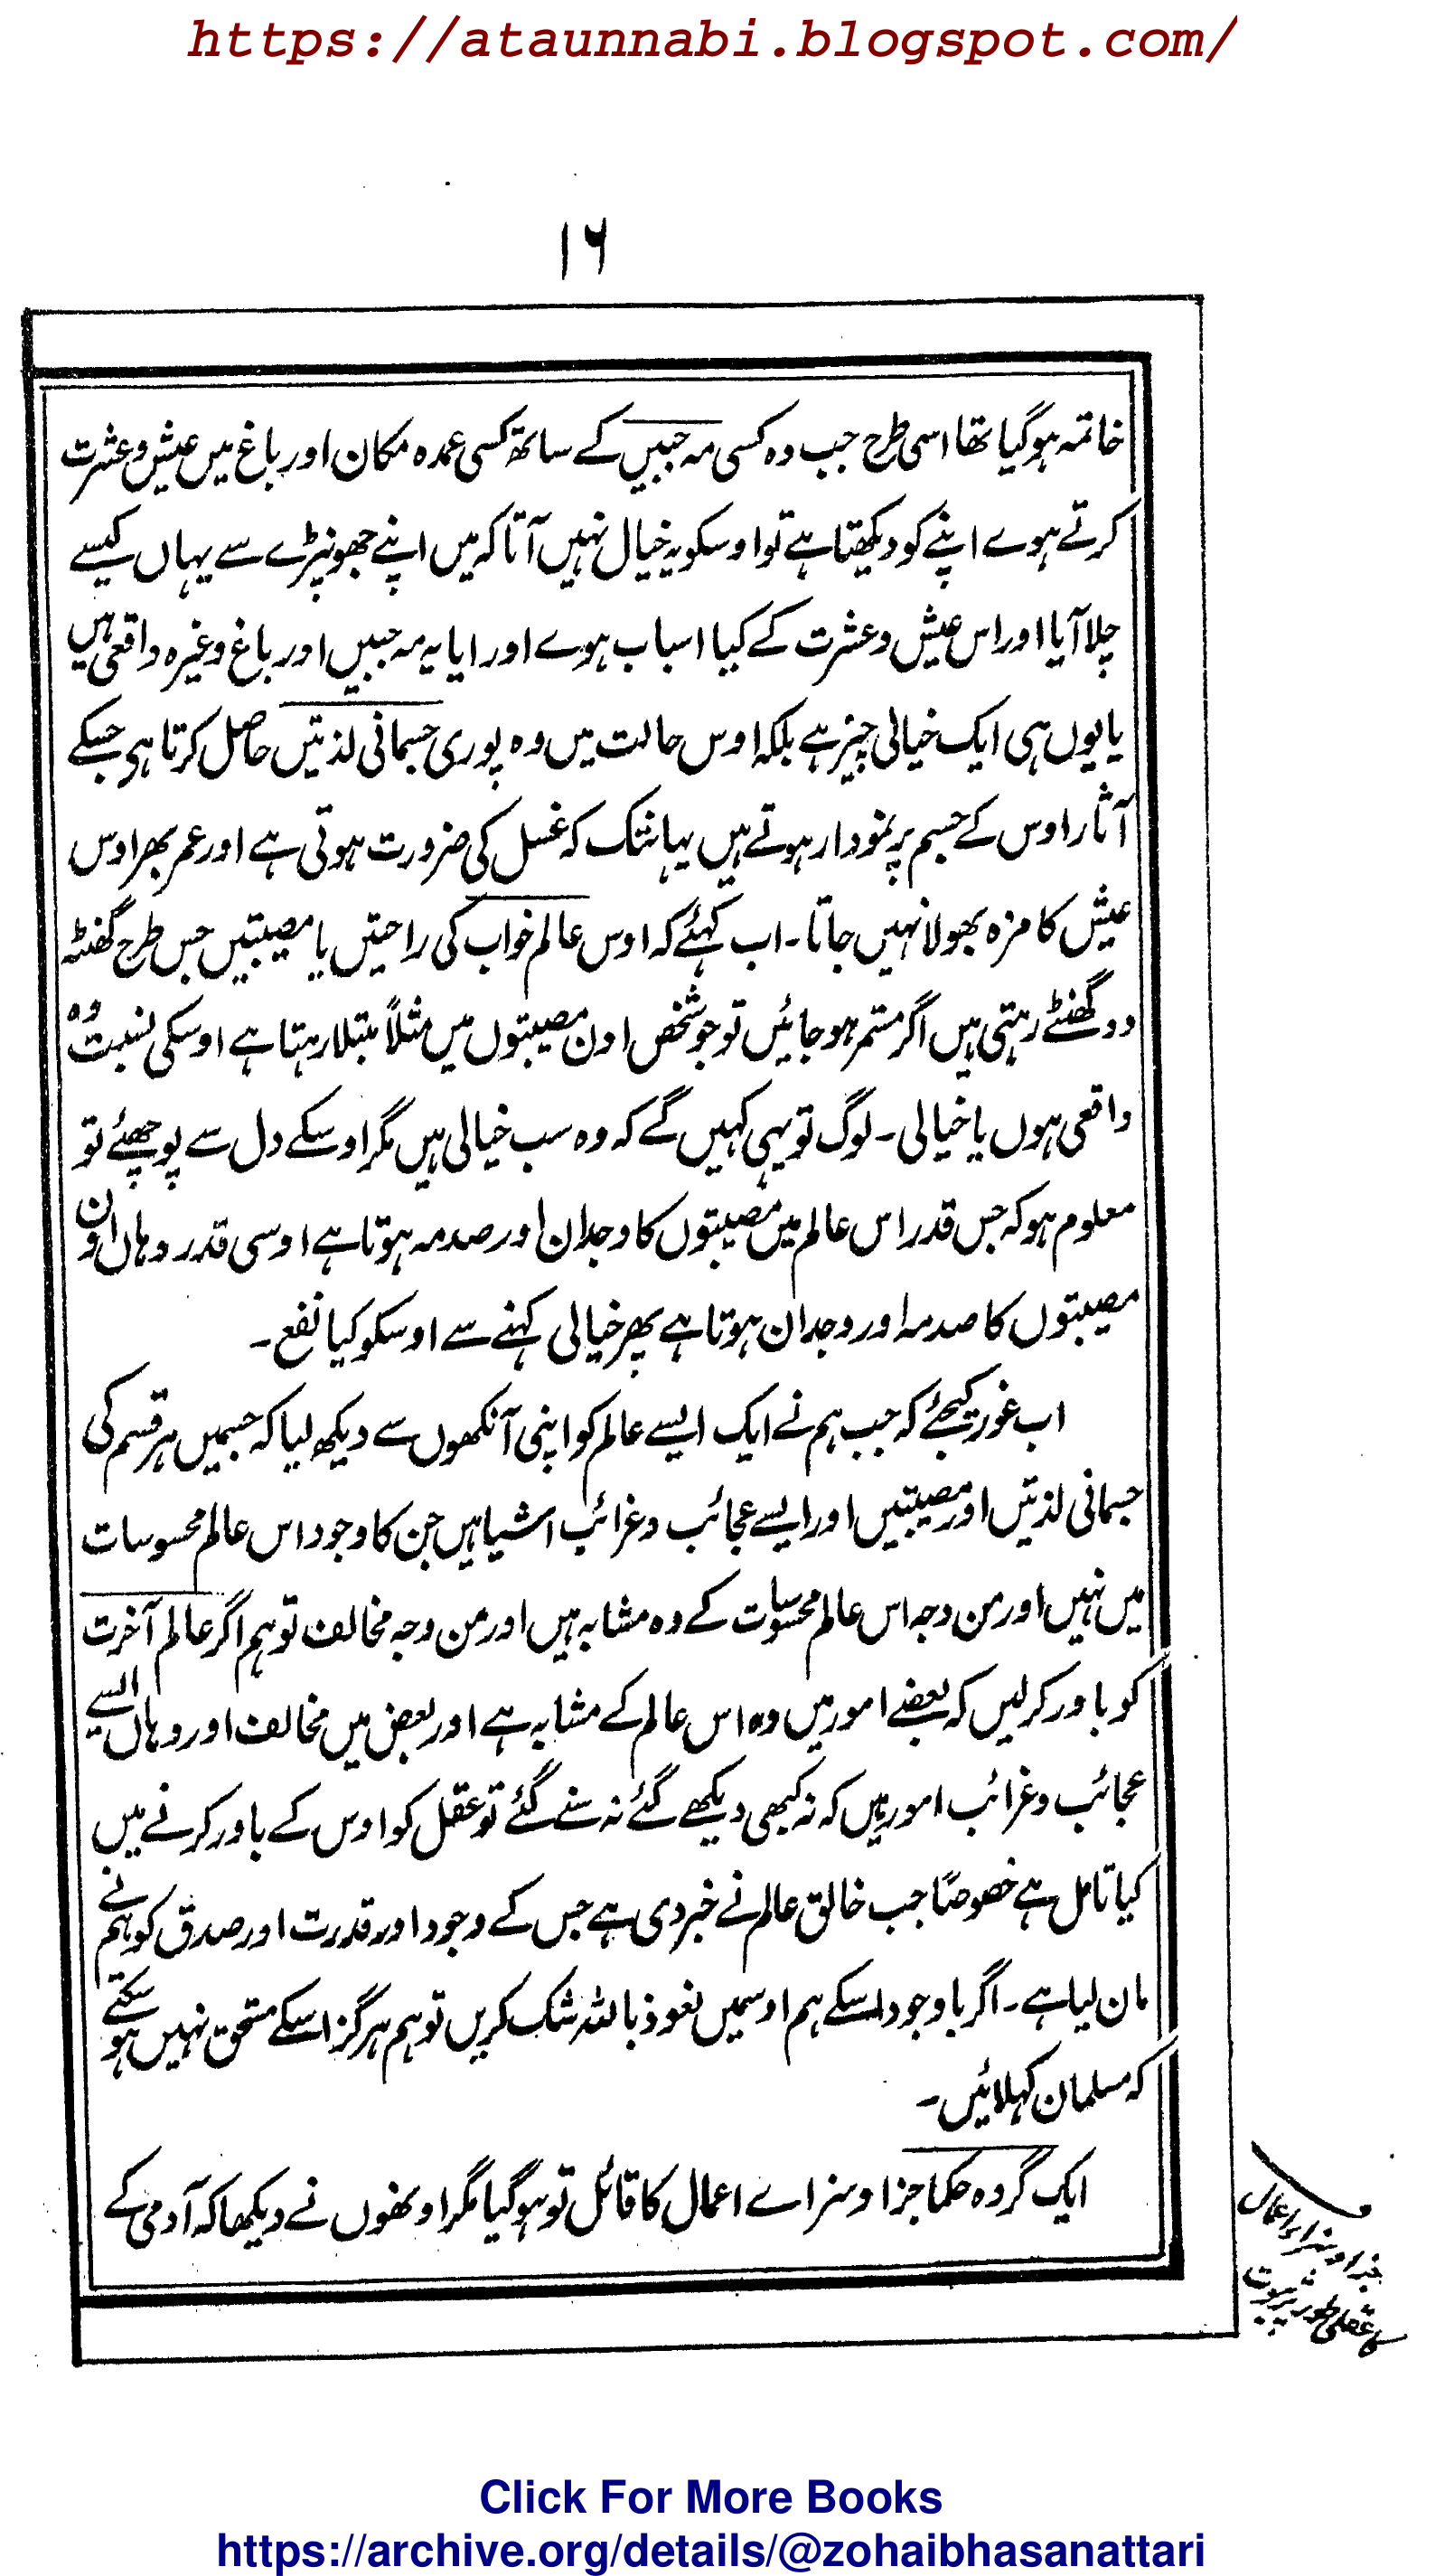 https://ataunnabi.blogspot.com/
۱۶
خاتمہ ہوگیا تھا اسی طرح جب وہ کسی مہ جبیں کے ساتھ کسی عمدہ مکان اور باغ میں عیش و عشرت
کرتے ہوے اپنے کو دیکھتا ہے تو اوسکو یہ خیال نہیں آتا کہ میں اپنے جھونپڑے سے یہاں کیسے
چلا آیا اور اس عیش و عشرت کے کیا اسباب ہوے اور ایا یہ مہ جبیں اور باغ وغیرہ واقعی ہیں
یا یوں ہی ایک خیالی چیز ہے بلکہ اوس حالت میں وہ پوری جسمانی لذتیں حاصل کرتا ہی جسکے
آثار اوس کے جسم پر نمودار ہوتے ہیں یہانتک کہ غسل کی ضرورت ہوتی ہے اور عمر بھر اوس
عیش کا مزہ بھولا نہیں جاتا ۔ اب کہئے کہ اوس عالم خواب کی راحتیں یا مصیبتیں جس طرح گھنٹہ
دو گھنٹے رہتی ہیں اگر مستمر ہو جائیں تو جو شخص اون مصیبتوں میں مثلاً مبتلا رہتا ہے اوسکی نسبت وہ
واقعی ہوں یا خیالی ۔ لوگ تو یہی کہیں گے کہ وہ سب خیالی ہیں مگر اوسکے دل سے پوچھئے تو
معلوم ہو کہ جس قدر اس عالم میں مصیبتوں کا وجدان اور صدمہ ہوتا ہے اوسی قدر وہاں اون
مصیبتوں کا صدمہ اور وجدان ہوتا ہے پھر خیالی کہنے سے اوسکو کیا نفع ۔
اب غور کیجئے کہ جب ہم نے ایک ایسے عالم کو اپنی آنکھوں سے دیکھ لیا کہ جسمیں ہر قسم کی
جسمانی لذتیں اور مصیبتیں اور ایسے عجائب و غرائب اشیا ہیں جن کا وجود اس عالم محسوسات
میں نہیں اور من وجہ اس عالم محسوسات کے وہ مشابہ ہیں اور من وجہ مخالف تو ہم اگر عالم آخرت
کو باور کرلیں کہ بعضے امور میں وہ اس عالم کے مشابہ ہے اور بعض میں مخالف اور وہاں ایسے
عجائب و غرائب امور ہیں کہ نہ کبھی دیکھے گئے نہ سنے گئے تو عقل کو اوس کے باور کرنے میں
کیا تامل ہے خصوصًا جب خالق عالم نے خبر دی ہے جس کے وجود اور قدرت اور صدق کو ہم نے
مان لیا ہے ۔ اگر باوجود اسکے ہم اوسمیں نعوذ باللہ شک کریں تو ہم ہرگز اسکے مستحق نہیں ہو سکتے
کہ مسلمان کہلائیں ۔
ایک گروہ حکما جزا و سزاے اعمال کا قائل تو ہوگیا مگر اونھوں نے دیکھا کہ آدمی کے
جزا و سزاے اعمال
کا عقلی طور پر ثبوت
Click For More Books
https://archive.org/details/@zohaibhasanattari